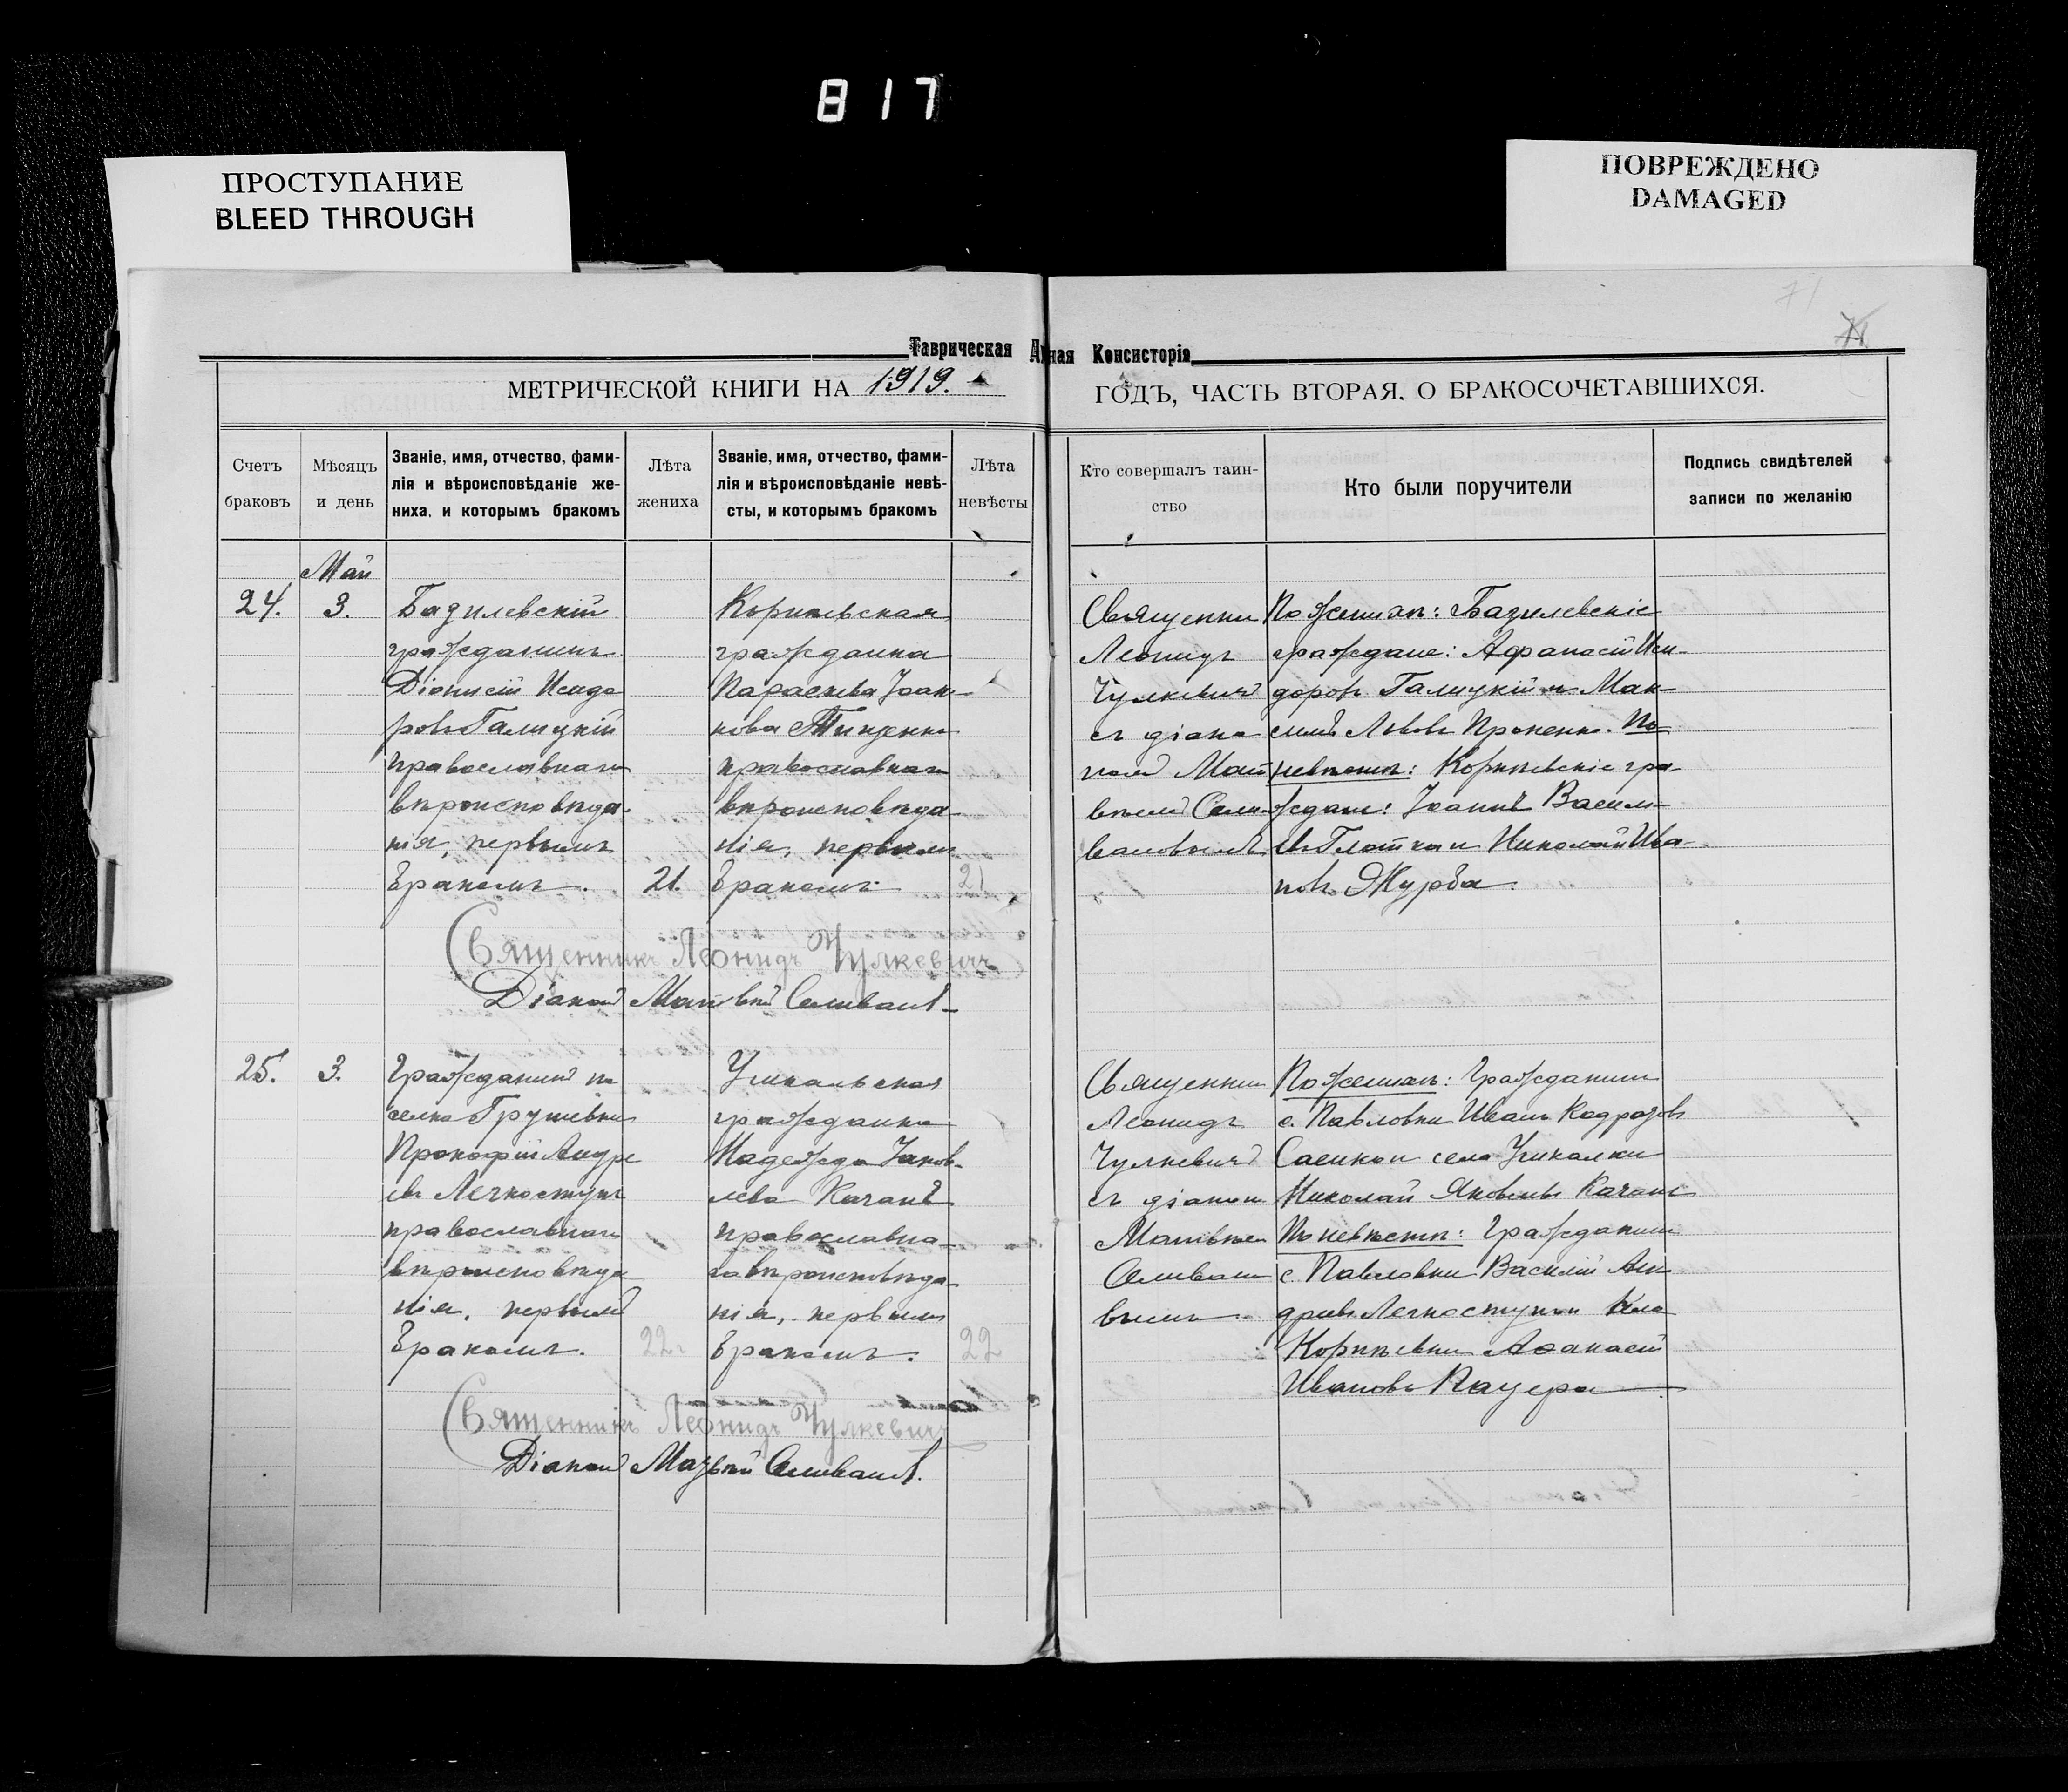 817
ПРОСТУПАНИЕ
BLEED THROUGH
ПОВРЕЖДЕНО
DAMAGED
71
Таврическая
ная Консисторія
МЕТРИЧЕСКОЙ КНИГИ НА 1919.
ГОДЪ, ЧАСТЬ ВТОРАЯ. О БРАКОСОЧЕТАВШИХСЯ.
Счетъ
браковъ
Мѣсяцъ
и день
Званіе, имя, отчество, фами-
лія и вѣроисповѣданіе же-
ниха, и которымъ бракомъ
Лѣта
жениха
Званіе, имя, отчество, фами-
лія и вѣроисповѣданіе невѣ-
сты, и которымъ бракомъ
Лѣта
невѣсты
Кто совершалъ таин-
ство
Кто были поручители
Подпись свидѣтелей
записи по желанію
Май
24.
3.
Базилевскій
гражданинъ
Діонисій Исидо
ровъ Галицкій
православнаго
вѣроисповѣда-
нія, первымъ
бракомъ.
21.
Корніевская
гражданка
Параскева Іоан-
нова
православнаго
вѣроисповѣда-
нія, первымъ
бракомъ.
21
Священник
Леонидъ
Чулкевичъ
съ діако
номъ Мат
вѣемъ Сели-
вановымъ
По женихѣ: Базилевскіе
граждане: Афанасій Иси-
доровъ Галицкій и Мак-
симъ Львовъ Проненко. По
невѣстѣ: Корніевскіе гра-
ждане: Іоаннъ Василь-
евъ Глотка и Николай Ива-
новъ Журба.
Священникъ Леонидъ Чулкевичъ
Діаконъ Матвѣй Селивановъ
25.
3.
Гражданинъ по
селка Грушевки
Прокофій Андре
евъ Легкоступъ
православнаго
вѣроисповѣда
нія, первымъ
бракомъ.
22
гражданка
Надежда Яков-
лева Качанъ
православна-
го вѣроисповѣда-
нія, первымъ
бракомъ.
22
Священник
Леонидъ
Чулкевичъ
съ діакон
Матвѣем
Селивано
вымъ
По женихѣ: Гражданинъ
с. Павловки Иванъ
и села
Николай Яковлевъ Качанъ
По невѣстѣ: Гражданин
с. Павловки Василій Ан
дреевъ Легкоступъ и села
Корніевки Афанасій
Ивановъ Пацера
Священникъ Леонидъ Чулкевичъ
Діаконъ Матвѣй Селивановъ.